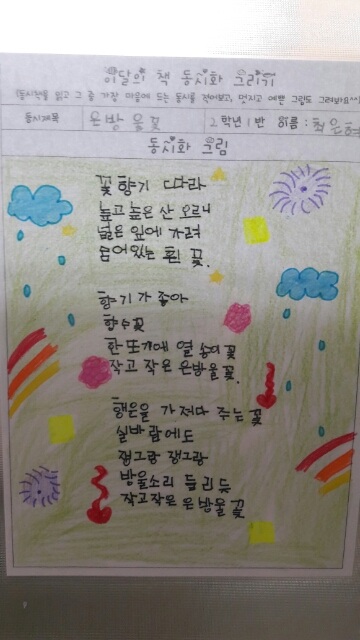 이달의 책 동시화 그리기
(동시집을 읽고 그 중 가장 마음에 드는 동시를 적어보고, 멋지고 예쁜 그림도 그려보아요^^)
동시제목 은방울꽃 2학년 1반 이름: 최은혁
동시화 그림
꽃향기 따라
높고 높은 산 오르니
넓은 잎에 가려
숨어있는 흰 꽃.
향기가 좋아
향수꽃
한 또개에 열 송이 꽃
작고 작은 은방울꽃.
행운을 가져다 주는 꽃
실바람에도
쟁그랑 쟁그랑
방울소리 들리듯
작고작은 은방울 꽃